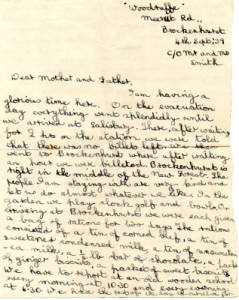 "Woodraffe"
Meerut Rd.,
Brockenhurst
4th Sept: 39
C/O Mr and Mrs
Smith
Dear Mother and Father,
I am having a
glorious time here. On the evacuation
day everything went splendidly until
we arrived at Salisbury. There, after waiting
for 2 hrs on the station we were told
that there was no billets left. We then
went to Brockenhurst where after waiting
an hour we were billeted. Brockenhurst is
right in the middle of the New Forest. The
people I am staying with are very good and
let us do almost whatever we like. In the
garden we play clock golf and bowls. On
arriving at Brockenhurst we were each given
rations for two days. The ration
consisted of a tin of corned beef, a tin of
sweetened condensed milk, a tin of unsweetened
milk, a 1/2 lb of chocolate,
of ginger biscuits packet of sweet biscuits
We have to report to an old wooden school
every morning at 10:30 and every evening
at 6:30 We have the rest of the day